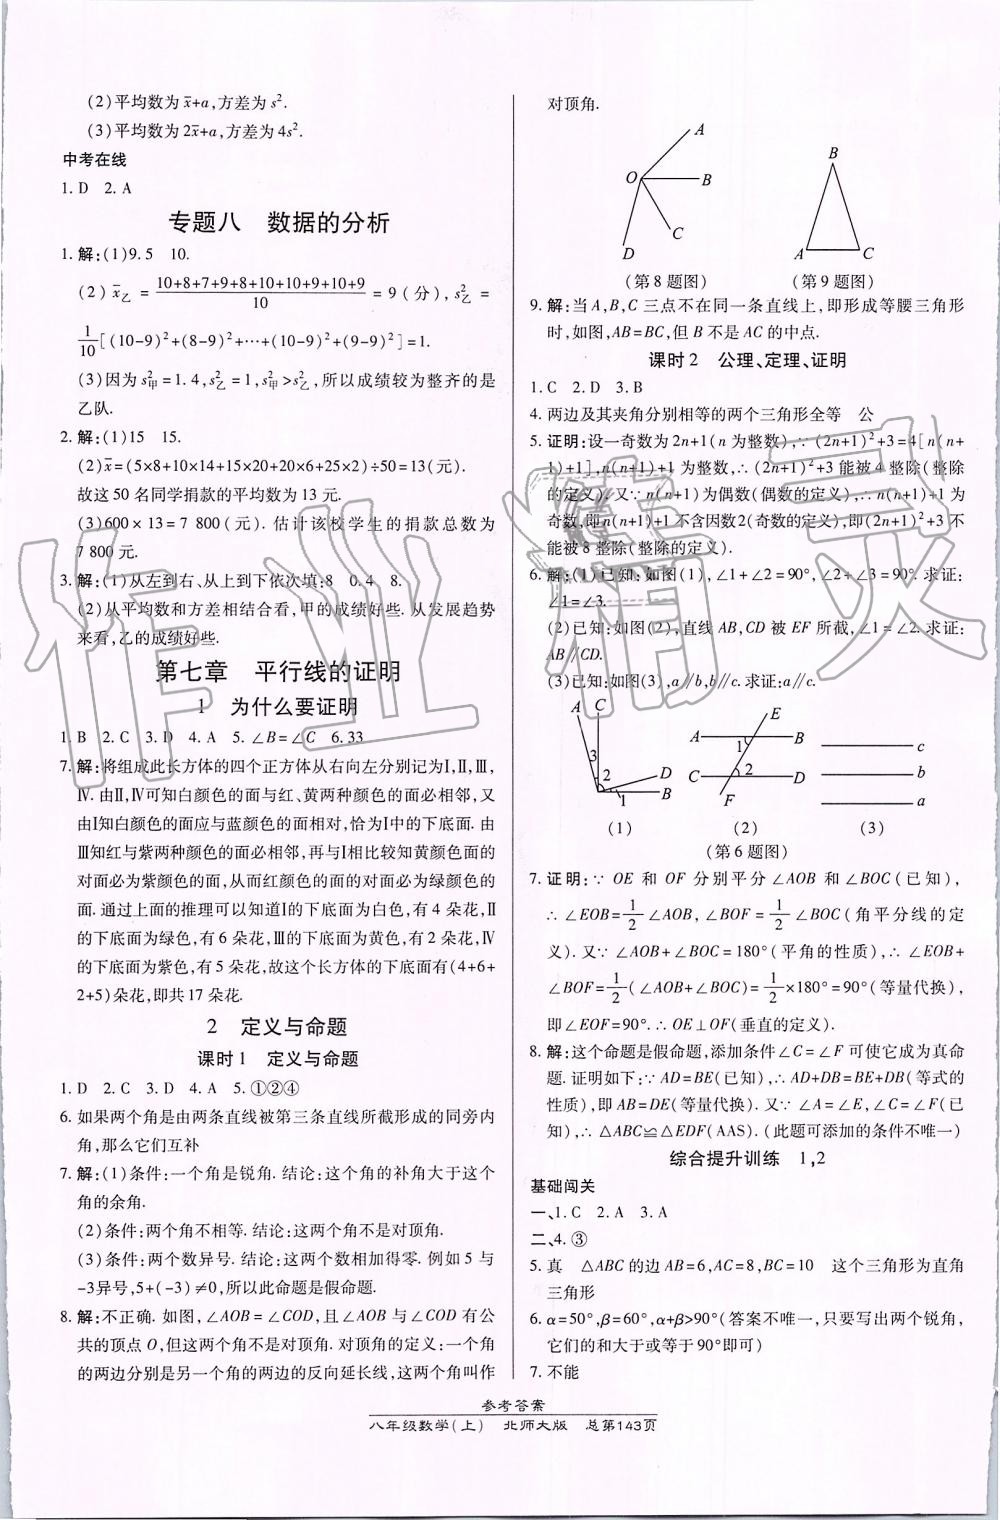 (2)平均数为x̄+a,方差为s².
(3)平均数为2x̄+a,方差为4s².
中考在线
1. D 2. A
专题八 数据的分析
1. 解:(1)9.5 10.
(2) x̄乙 = (10+8+7+9+8+10+10+9+10+9)/10 = 9(分), s²乙 =
1/10[(10-9)²+(8-9)²+…+(10-9)²+(9-9)²]=1.
(3)因为s²甲=1.4, s²乙=1, s²甲>s²乙, 所以成绩较为整齐的是
乙队.
2. 解:(1)15 15.
(2)x̄=(5×8+10×14+15×20+20×6+25×2)÷50=13(元).
故这50名同学捐款的平均数为13元.
(3)600×13=7 800(元). 估计该校学生的捐款总数为
7 800元.
3. 解:(1)从左到右、从上到下依次填:8 0.4 8.
(2)从平均数和方差相结合看,甲的成绩好些. 从发展趋势
来看,乙的成绩好些.
第七章 平行线的证明
1 为什么要证明
1. B 2. C 3. D 4. A 5. ∠B=∠C 6. 33
7. 解:将组成此长方体的四个正方体从右向左分别记为Ⅰ,Ⅱ,Ⅲ,
Ⅳ. 由Ⅱ,Ⅳ可知白颜色的面与红、黄两种颜色的面必相邻,又
由Ⅰ知白颜色的面应与蓝颜色的面相对,恰为Ⅰ中的下底面. 由
Ⅲ知红与紫两种颜色的面必相邻,再与Ⅰ相比较知黄颜色面的
对面必为紫颜色的面,从而红颜色的面的对面必为绿颜色的
面. 通过上面的推理可以知道Ⅰ的下底面为白色,有4朵花,Ⅱ
的下底面为绿色,有6朵花,Ⅲ的下底面为黄色,有2朵花,Ⅳ
的下底面为紫色,有5朵花,故这个长方体的下底面有(4+6+
2+5)朵花,即共17朵花.
2 定义与命题
课时1 定义与命题
1. D 2. C 3. D 4. A 5. ①②④
6. 如果两个角是由两条直线被第三条直线所截形成的同旁内
角,那么它们互补
7. 解:(1)条件:一个角是锐角. 结论:这个角的补角大于这个
角的余角.
(2)条件:两个角不相等. 结论:这两个角不是对顶角.
(3)条件:两个数异号. 结论:这两个数相加得零. 例如5与
-3异号,5+(-3)≠0,所以此命题是假命题.
8. 解:不正确. 如图,∠AOB=∠COD,且∠AOB与∠COD有公
共的顶点O,但这两个角不是对顶角. 对顶角的定义:一个角
的两边分别是另一个角的两边的反向延长线,这两个角叫作
对顶角.
A
O
B
C
D
(第8题图)
B
A
C
(第9题图)
9. 解:当A,B,C三点不在同一条直线上,即形成等腰三角形
时,如图,AB=BC,但B不是AC的中点.
课时2 公理、定理、证明
1. C 2. D 3. B
4. 两边及其夹角分别相等的两个三角形全等 公
5. 证明:设一奇数为2n+1(n为整数),∵(2n+1)²+3=4[n(n+
1)+1],n(n+1)+1为整数,∴(2n+1)²+3能被4整除(整除
的定义). 又∵n(n+1)为偶数(偶数的定义),∴n(n+1)+1为
奇数,即n(n+1)+1不含因数2(奇数的定义),即(2n+1)²+3不
能被8整除(整除的定义).
6. 解:(1)已知:如图(1),∠1+∠2=90°,∠2+∠3=90°. 求证:
∠1=∠3.
(2)已知:如图(2),直线AB,CD被EF所截,∠1=∠2. 求证:
AB∥CD.
(3)已知:如图(3),a∥b,b∥c. 求证:a∥c.
A C
3
2
D
1
B
(1)
E
A
1
B
C
2
D
F
(2)
c
b
a
(3)
(第6题图)
7. 证明:∵OE和OF分别平分∠AOB和∠BOC(已知),
∴∠EOB=1/2∠AOB,∠BOF=1/2∠BOC(角平分线的定
义). 又∵∠AOB+∠BOC=180°(平角的性质),∴∠EOB+
∠BOF=1/2(∠AOB+∠BOC)=1/2×180°=90°(等量代换),
即∠EOF=90°. ∴OE⊥OF(垂直的定义).
8. 解:这个命题是假命题,添加条件∠C=∠F可使它成为真命
题. 证明如下:∵AD=BE(已知),∴AD+DB=BE+DB(等式的
性质),即AB=DE(等量代换). 又∵∠A=∠E,∠C=∠F(已
知),∴△ABC≌△EDF(AAS). (此题可添加的条件不唯一)
综合提升训练 1,2
基础闯关
一、1. C 2. A 3. A
二、4. ③
5. 真 △ABC的边AB=6,AC=8,BC=10 这个三角形为直角
三角形
6. α=50°,β=60°,α+β>90°(答案不唯一,只要写出两个锐角,
它们的和大于或等于90°即可)
7. 不能
参考答案
八年级数学(上) 北师大版 总第143页
作业精灵